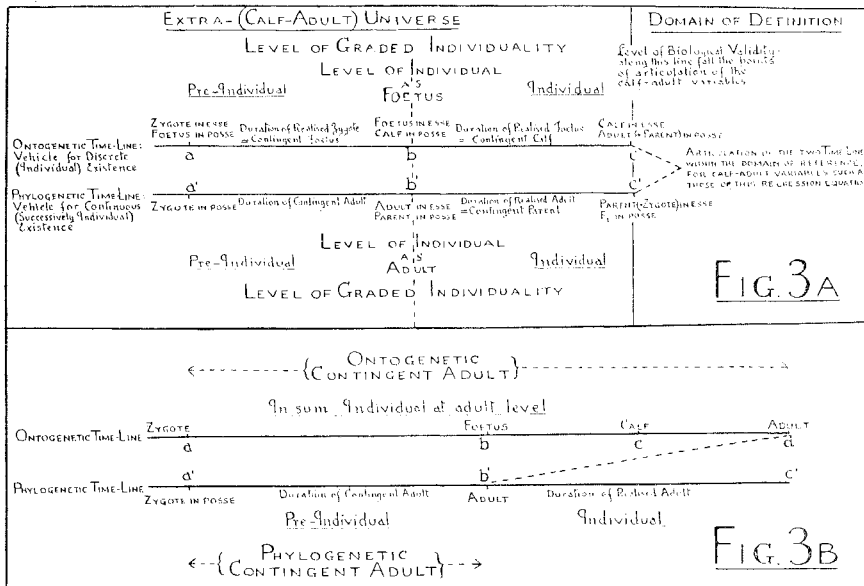 EXTRA-(CALF-ADULT) UNIVERSE
DOMAIN OF DEFINITION
LEVEL OF GRADED INDIVIDUALITY
LEVEL OF INDIVIDUAL
AS
FOETUS
Pre-Individual
Individual
Level of Biological Validity:
along this line fall the points
of articulation of the
calf-adult variables
ZYGOTE IN ESSE
FOETUS IN POSSE
Duration of Realised Zygote
=Contingent Foetus
FOETUS IN ESSE
CALF IN POSSE
Duration of Realised Foetus
=Contingent Calf
CALF IN ESSE
ADULT (=PARENT) IN POSSE
ONTOGENETIC TIME-LINE:
Vehicle for Discrete
(Individual) Existence
a
b
c
ARTICULATION OF THE TWO TIME LINES
WITHIN THE DOMAIN OF REFERENCE,
FOR CALF-ADULT VARIABLES SUCH AS
THOSE OF THIS REGRESSION EQUATION
a'
b'
c'
PHYLOGENETIC TIME-LINE:
Vehicle for Continuous
(Successively Individual)
Existence
ZYGOTE IN POSSE
Duration of Contingent Adult
ADULT IN ESSE
PARENT IN POSSE
Duration of Realised Adult
=Contingent Parent
PARENT(=ZYGOTE) IN ESSE
F₁ IN POSSE
LEVEL OF INDIVIDUAL
Pre-Individual
AS
ADULT
Individual
LEVEL OF GRADED INDIVIDUALITY
FIG. 3A
ONTOGENETIC
CONTINGENT ADULT
In sum Individual at adult level
ONTOGENETIC TIME-LINE
ZYGOTE
FOETUS
CALF
ADULT
a
b
c
d
a'
b'
c'
PHYLOGENETIC TIME-LINE
ZYGOTE IN POSSE
Duration of Contingent Adult
ADULT
Duration of Realised Adult
Pre-Individual
Individual
PHYLOGENETIC
CONTINGENT ADULT
FIG. 3B